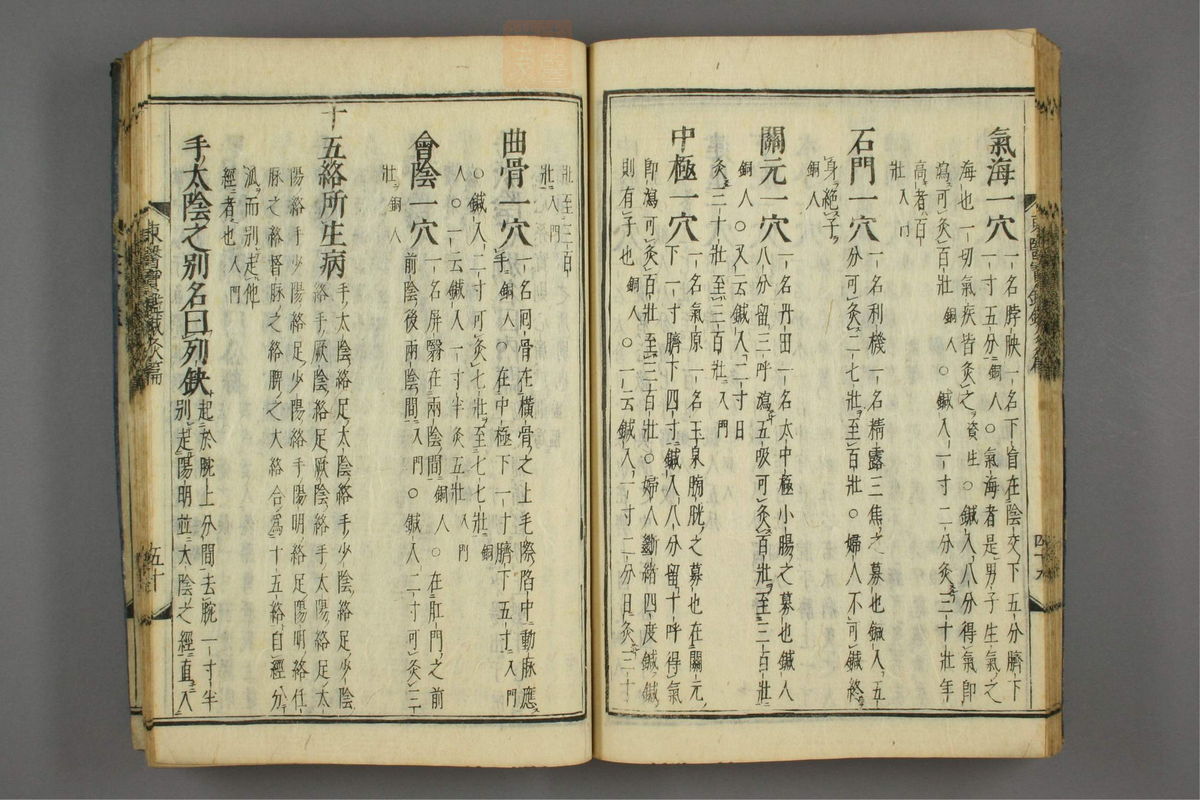 氣海一穴 一名脖胦一名下肓在陰交下五分臍下
一寸五分銅人○氣海者是男子生氣之
海也一切氣疾皆灸之資生○鍼入八分得氣即
瀉可灸百壯銅人○鍼入一寸二分灸三十壯年
高者百
壯入門
石門一穴 一名利機一名精露三焦之募也鍼入五
分可灸二七壯至百壯○婦人不可鍼終
身絶子
銅人
關元一穴 一名丹田一名太中極小腸之募也鍼入
八分留三呼瀉五吸可灸百壯至三百壯
銅人○又云鍼入二寸日
灸三十壯至三百壯入門
中極一穴 一名氣原一名玉泉膀胱之募也在關元
下一寸臍下四寸鍼入八分留十呼得氣
即瀉可灸百壯至三百壯○婦人斷緖四度鍼鍼
則有子也銅人○一云鍼入一寸二分日灸三十
東醫寶鑑鍼灸篇
四十九
壯至三百
壯入門
曲骨一穴 一名 骨在橫骨之上毛際陷中動脉應
手銅人○在中極下一寸臍下五寸入門
○鍼入二寸可灸七壯至七七壯銅
人○一云鍼入一寸半灸五壯入門
會陰一穴 一名屛翳在兩陰間銅人○在肛門之前
前陰後兩陰間入門○鍼入二寸可灸三
壯銅人
十五絡所生病 手太陰絡足太陰絡手少陰絡足少陰
絡手厥陰絡足厥陰絡手太陽絡足太
陽絡手少陽絡足少陽絡手陽明絡足陽明絡任
脉之絡督脉之絡脾之大絡合爲十五絡自經分
派而別起他
經者也入門
手太陰之別名曰列缺 起於腕上分間去腕一寸半
別走陽明並太陰之經直入
東醫寶鑑鍼灸篇
五十